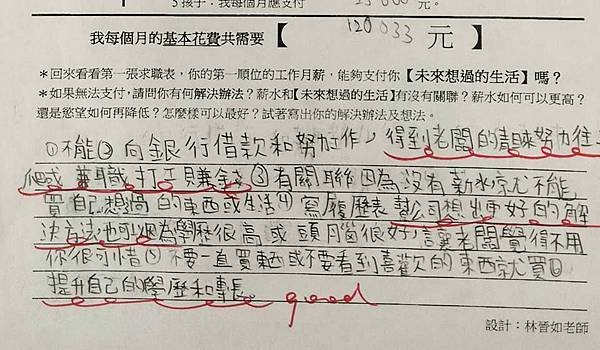 5 孩子:我每個月應支付 25000 元。
我每個月的基本花費共需要【 120033 元 】
＊回來看看第一張求職表,你的第一順位的工作月薪,能夠支付你【未來想過的生活】嗎?
＊如果無法支付,請問你有何解決辦法?薪水和【未來想過的生活】有沒有關聯?薪水如何可以更高?
還是慾望如何再降低?怎麼樣可以最好?試著寫出你的解決辦法及想法。
①不能②向銀行借款和努力工作,得到老闆的青睞努力往上
爬或兼職打工賺錢③有關聯因為沒有薪水就不能
買自己想過的東西或生活④寫履歷表替公司想出更好的解
決方法也可以因為學歷很高或頭腦很好,讓老闆覺得不用
你很可惜⑤不要一直買東西或不要看到喜歡的東西就買⑥
提升自己的學歷和專長。 good
設計:林晉如老師